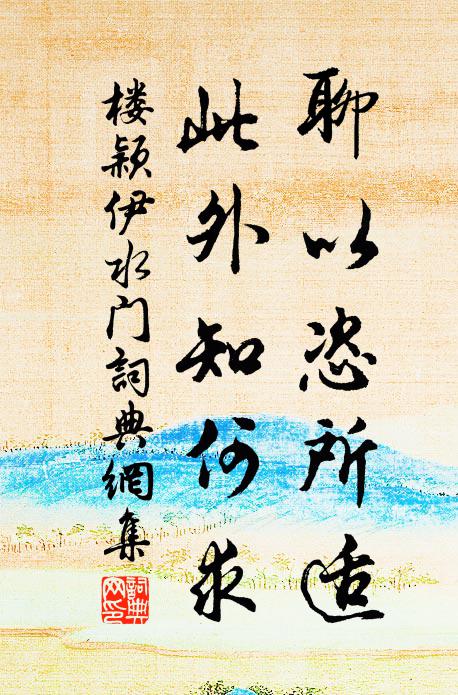 聊以恣所适
此外知何求
楼颖伊水门詞典網集
詞典網印